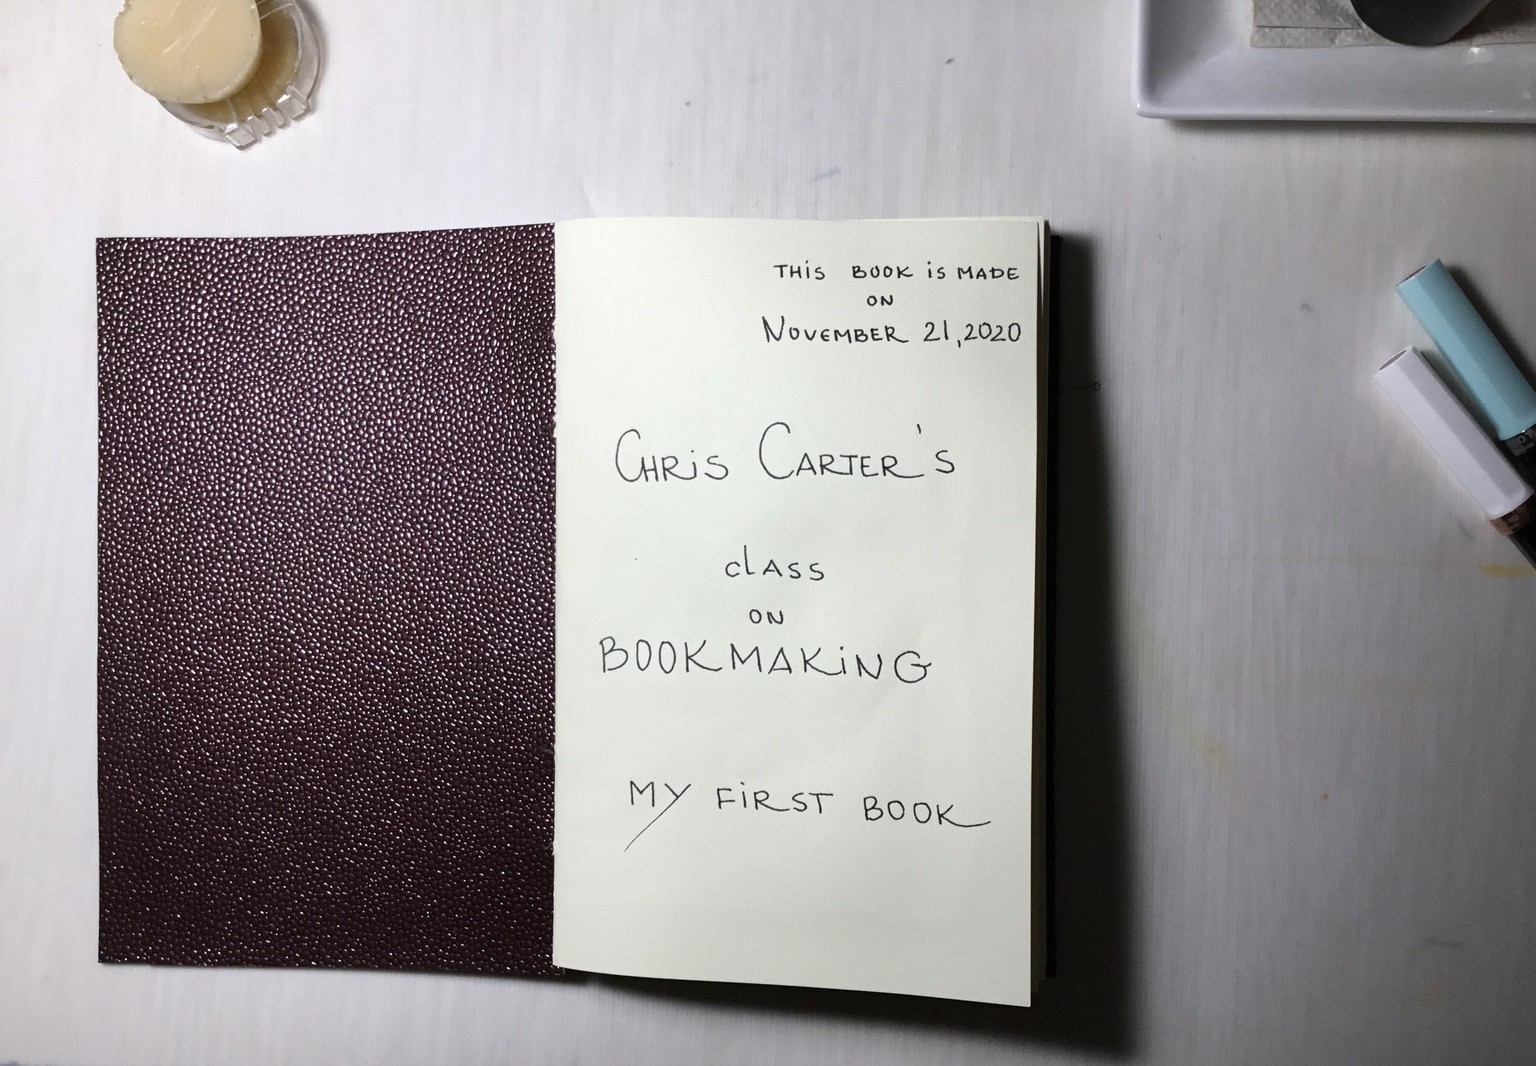 THiS BOOK iS MADE
ON
NOVEMBER 21, 2020
CHRiS CARTER'S
clASS
ON
BOOKMAKiNG
MY FiRST BOOK